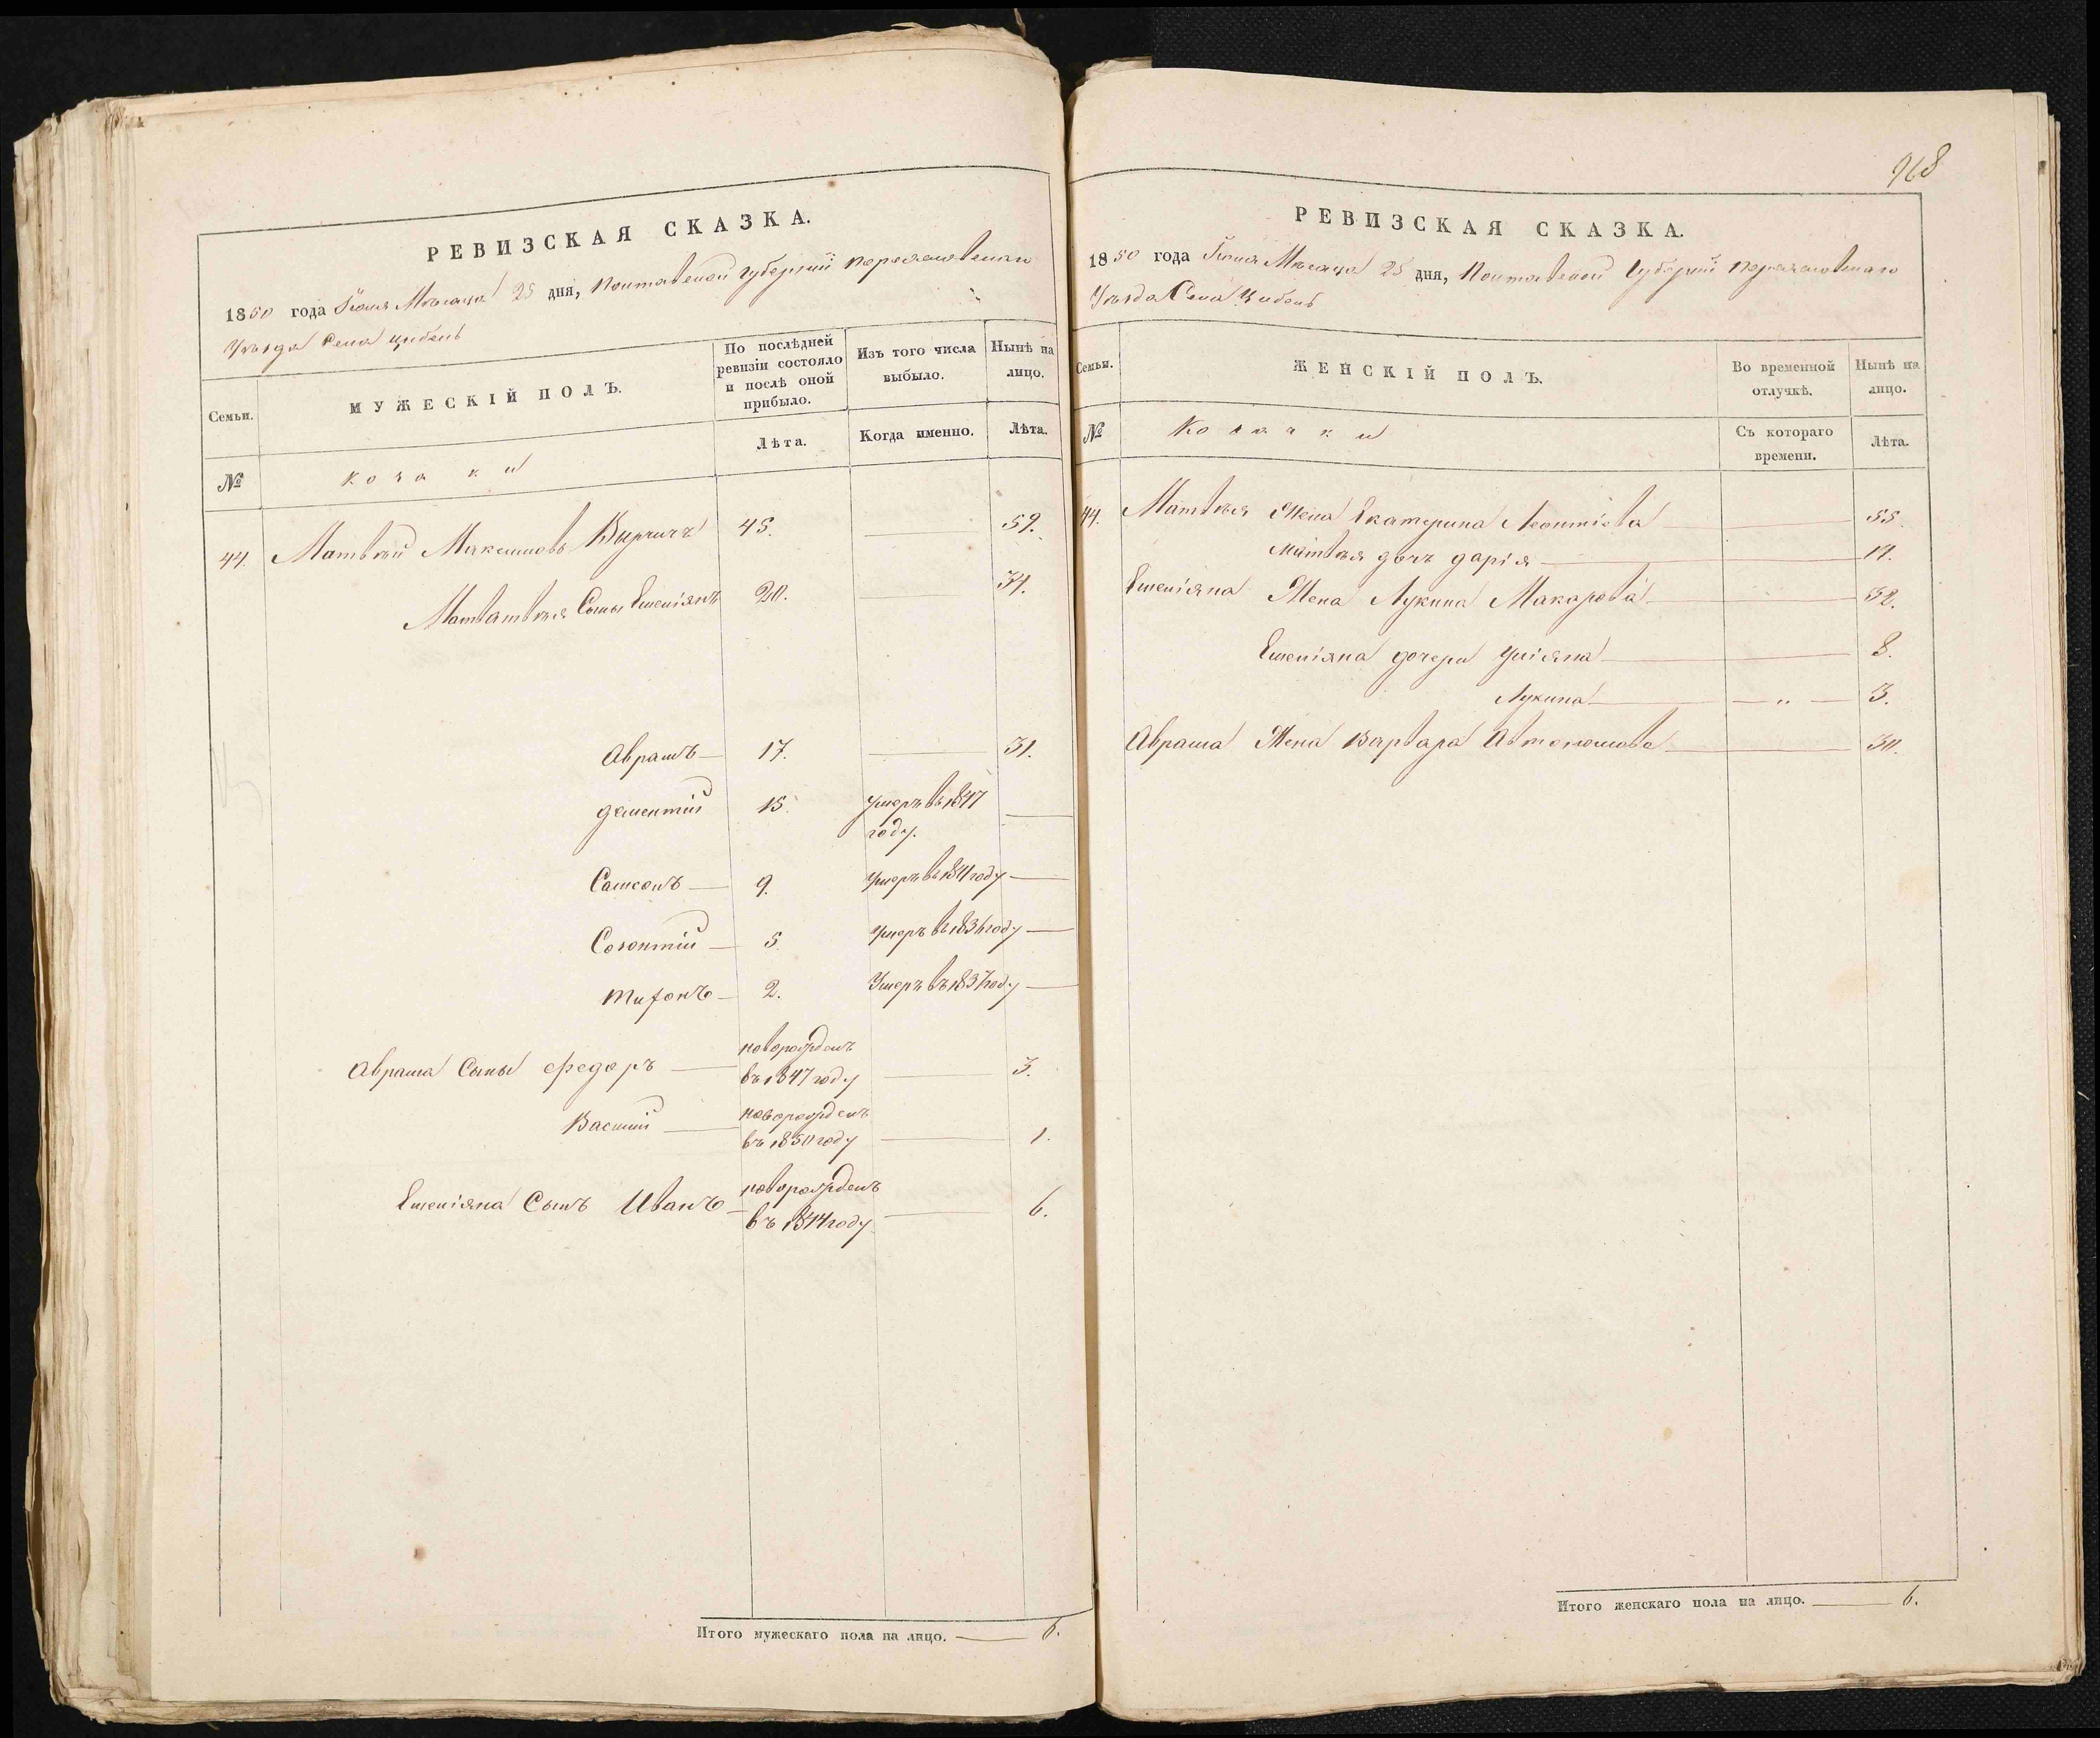 РЕВИЗСКАЯ СКАЗКА.
1850 года Іюня Мѣсяца 25 дня, Полтавской губерніи Переяславскаго
Уѣзда Села Цибель
Семьи.
МУЖЕСКІЙ ПОЛЪ.
По послѣдней ревизіи состояло и послѣ оной прибыло.
Изъ того числа выбыло.
Нынѣ на лицо.
№
козаки
Лѣта.
Когда именно.
Лѣта.
44. Матвѣй Максимовъ 45. 59.
Сыны Емеліянъ 20. 34.
Абрамъ 17. 31.
дементій 15. Умеръ въ 1847 году.
Самсонъ 9. Умеръ въ 1841 году
Созонтій 5. Умеръ въ 1836 году
2. Умеръ въ 1837 году
Абрама Сыны Федоръ новорожденъ въ 1847 году 3.
Василій новорожденъ въ 1850 году 1.
Емеліяна Сынъ Иванъ новорожденъ въ 1844 году 6.
Итого мужескаго пола на лицо. 6.
968
РЕВИЗСКАЯ СКАЗКА.
1850 года Іюня Мѣсяца 25 дня, Полтавской Губерніи Переяславскаго
Уѣзда Села Цибель
Семьи.
ЖЕНСКІЙ ПОЛЪ.
Во временной отлучкѣ.
Нынѣ на лицо.
№
Козачки
Съ котораго времени.
Лѣта.
44. Матвѣя Жена Екатерина Леонтіева 55.
Матвѣя дочь дарія
Емеліяна Жена Лукина Макарова 32.
Емеліяна дочери Уліяна 8.
Лукина — „ — 3.
Абрама Жена Варвара Автономова 30.
Итого женскаго пола на лицо. 6.